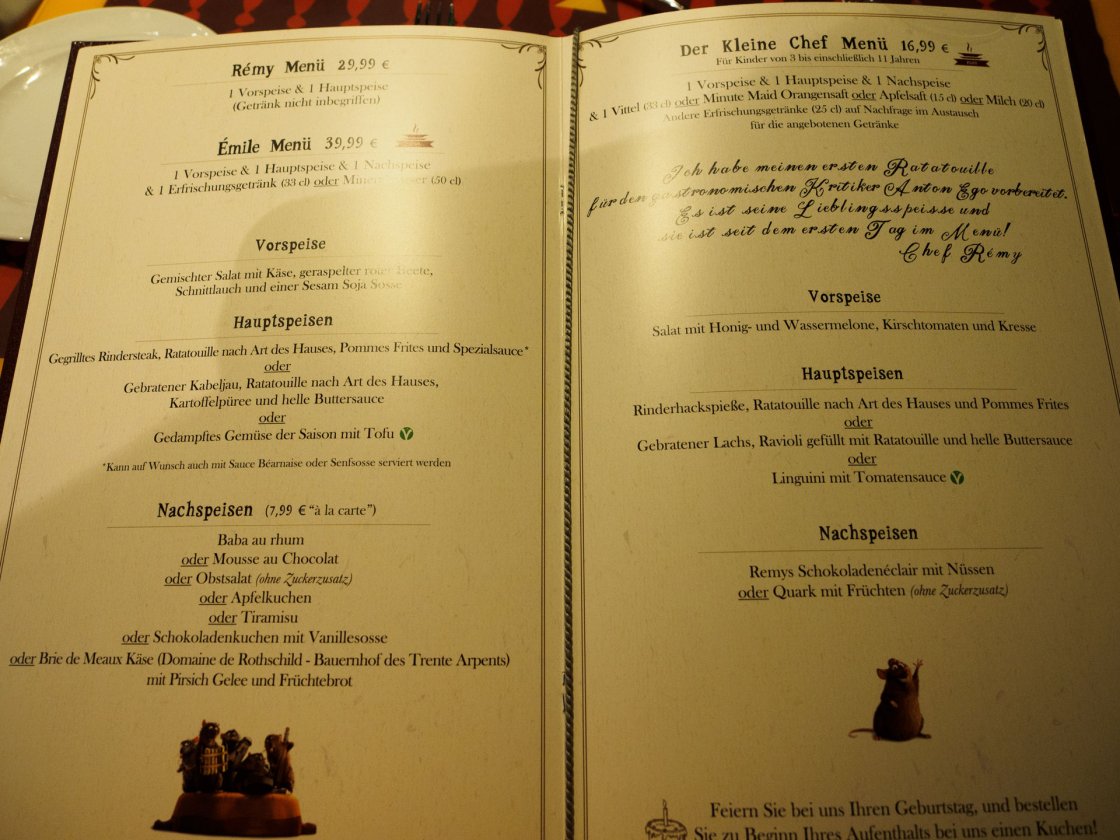 Rémy Menü 29,99 €
1 Vorspeise & 1 Hauptspeise
(Getränk nicht inbegriffen)
Émile Menü 39,99 €
1 Vorspeise & 1 Hauptspeise & 1 Nachspeise
& 1 Erfrischungsgetränk (33 cl) oder Mineralwasser (50 cl)
Vorspeise
Gemischter Salat mit Käse, geraspelter roter Beete,
Schnittlauch und einer Sesam Soja Sosse
Hauptspeisen
Gegrilltes Rindersteak, Ratatouille nach Art des Hauses, Pommes Frites und Spezialsauce*
oder
Gebratener Kabeljau, Ratatouille nach Art des Hauses,
Kartoffelpüree und helle Buttersauce
oder
Gedampftes Gemüse der Saison mit Tofu V
*Kann auf Wunsch auch mit Sauce Béarnaise oder Senfsosse serviert werden
Nachspeisen (7,99 € “à la carte”)
Baba au rhum
oder Mousse au Chocolat
oder Obstsalat (ohne Zuckerzusatz)
oder Apfelkuchen
oder Tiramisu
oder Schokoladenkuchen mit Vanillesosse
oder Brie de Meaux Käse (Domaine de Rothschild - Bauernhof des Trente Arpents)
mit Pirsich Gelee und Früchtebrot
Der Kleine Chef Menü 16,99 €
Für Kinder von 3 bis einschließlich 11 Jahren
1 Vorspeise & 1 Hauptspeise & 1 Nachspeise
& 1 Vittel (33 cl) oder Minute Maid Orangensaft oder Apfelsaft (15 cl) oder Milch (20 cl)
Andere Erfrischungsgetränke (25 cl) auf Nachfrage im Austausch
für die angebotenen Getränke
Ich habe meinen ersten Ratatouille
für den gastronomischen Kritiker Anton Ego vorbereitet.
Es ist seine Lieblingsspeisse und
sie ist seit dem ersten Tag im Menü!
Chef Rémy
Vorspeise
Salat mit Honig- und Wassermelone, Kirschtomaten und Kresse
Hauptspeisen
Rinderhackspieße, Ratatouille nach Art des Hauses und Pommes Frites
oder
Gebratener Lachs, Ravioli gefüllt mit Ratatouille und helle Buttersauce
oder
Linguini mit Tomatensauce V
Nachspeisen
Remys Schokoladenéclair mit Nüssen
oder Quark mit Früchten (ohne Zuckerzusatz)
Feiern Sie bei uns Ihren Geburtstag, und bestellen
Sie zu Beginn Ihres Aufenthalts bei uns einen Kuchen!